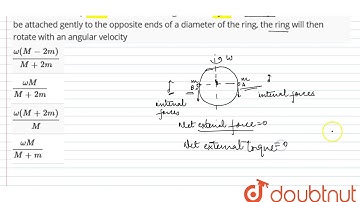 be attached gently to the opposite ends of a diameter of the ring, the ring will then
rotate with an angular velocity
ω(M − 2m)
M + 2m
ωM
M + 2m
ω(M + 2m)
M
ωM
M + m
ω
m
B
m
A
internal
forces
internal forces
Net external force=0
Net external torque=0
doubtnut